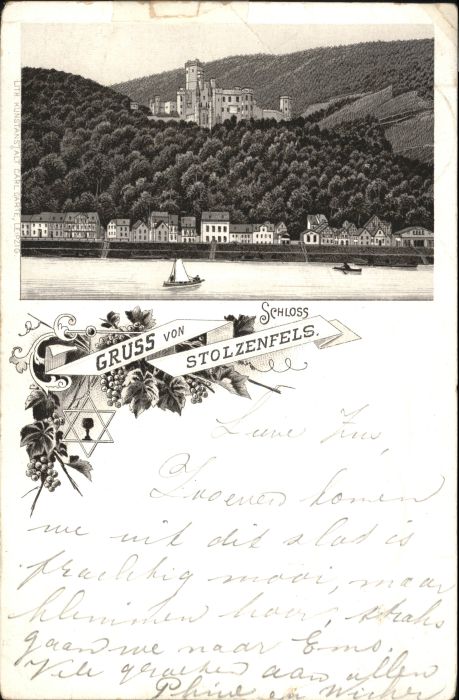 LITH. KUNSTANSTALT CARL GARTE, LEIPZIG
GRUSS VON
SCHLOSS
STOLZENFELS.
Lieve Zus,
Zooeven komen
we uit dit slot is
prachtig mooi, maar
klimmen hoor, straks
gaan we naar Ems.
Vele groeten aan allen
Phine en